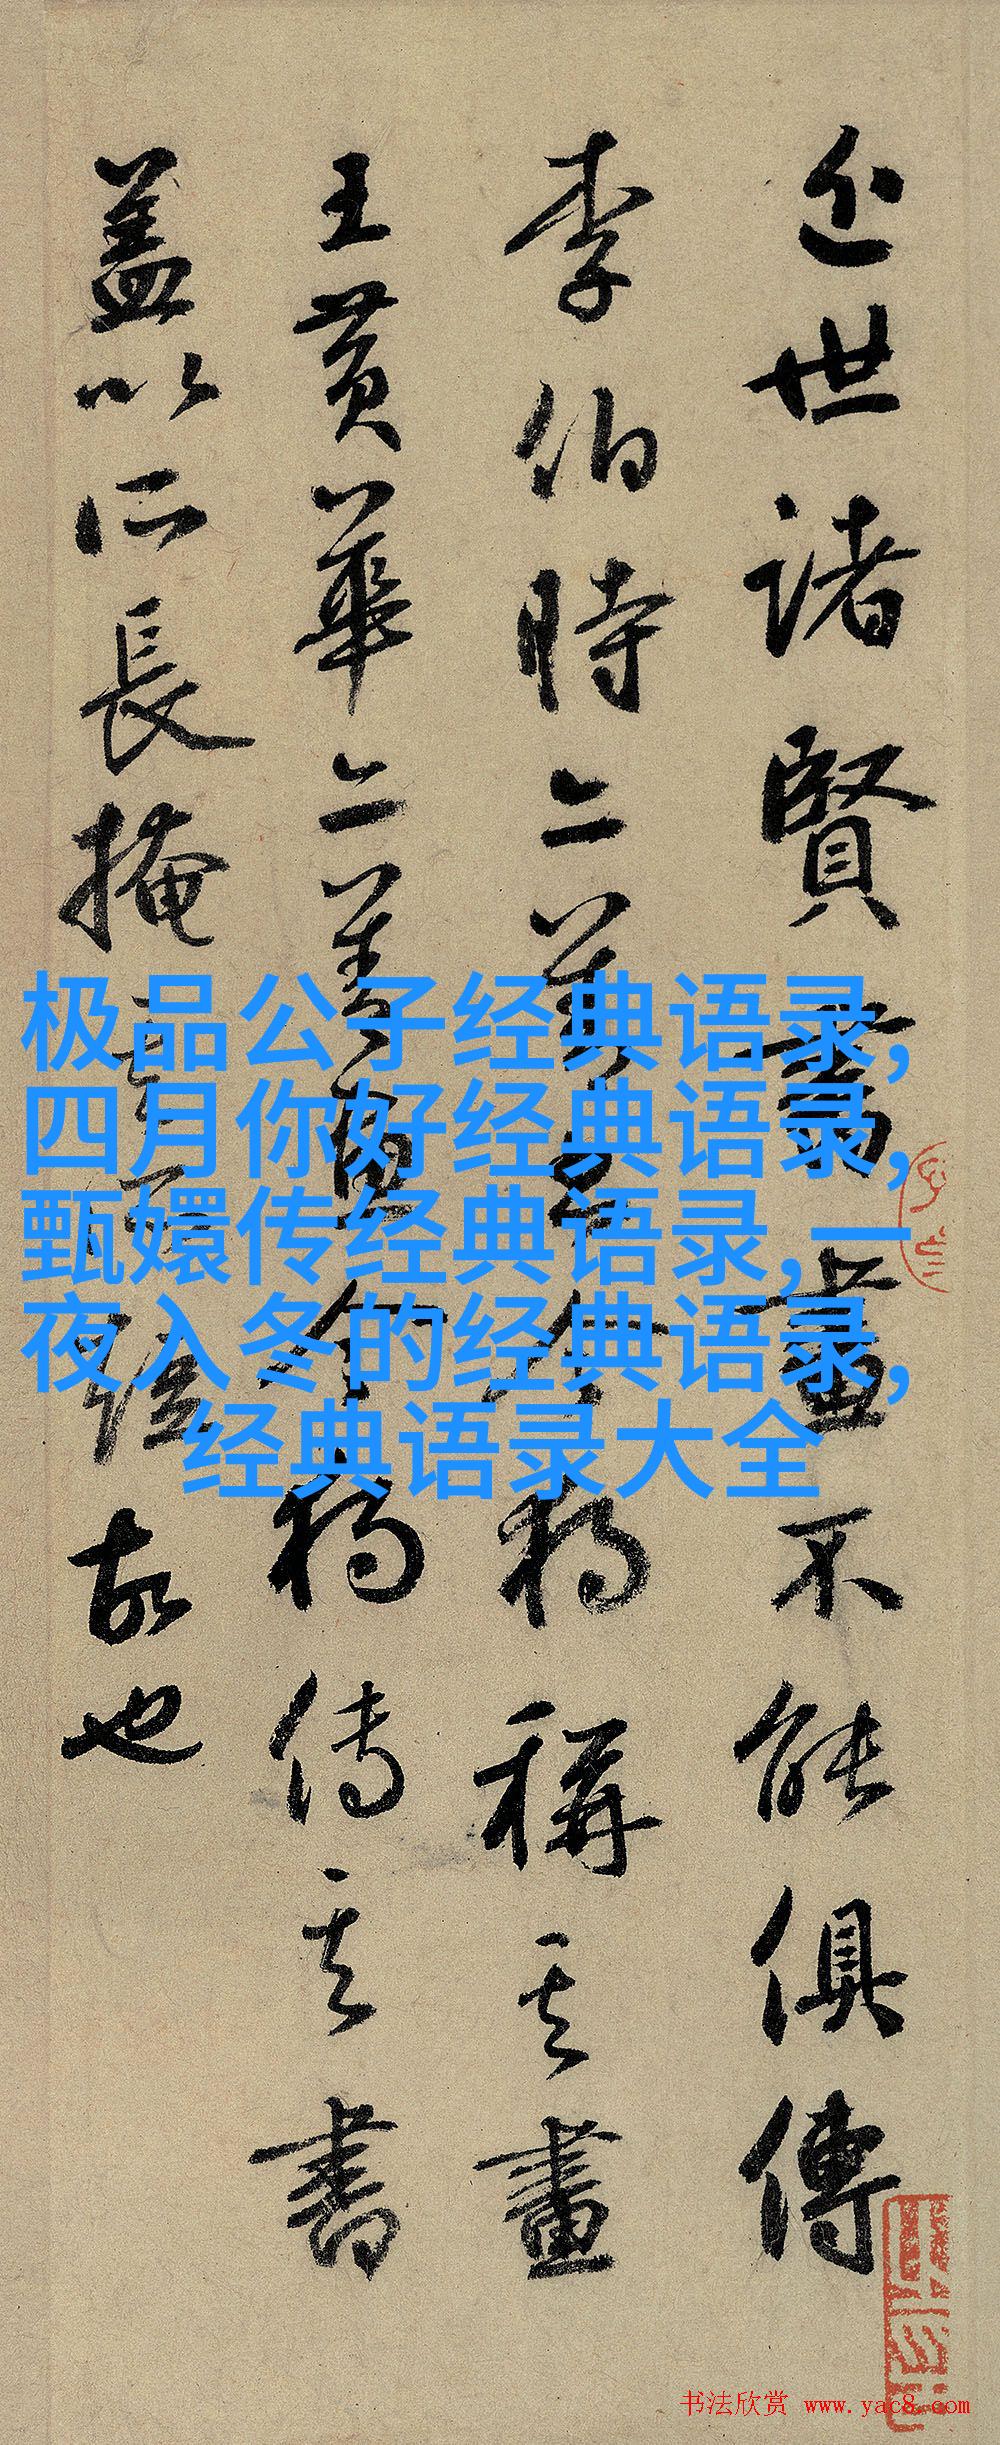 近世諸賢書畫不能俱傳
李伯時二美具今獨稱其畫
王黃華二美具今獨傳其書
蓋以所長掩故也
极品公子经典语录,
四月你好经典语录,
甄嬛传经典语录,一
夜入冬的经典语录,
经典语录大全
书法欣赏 www.yac8.com